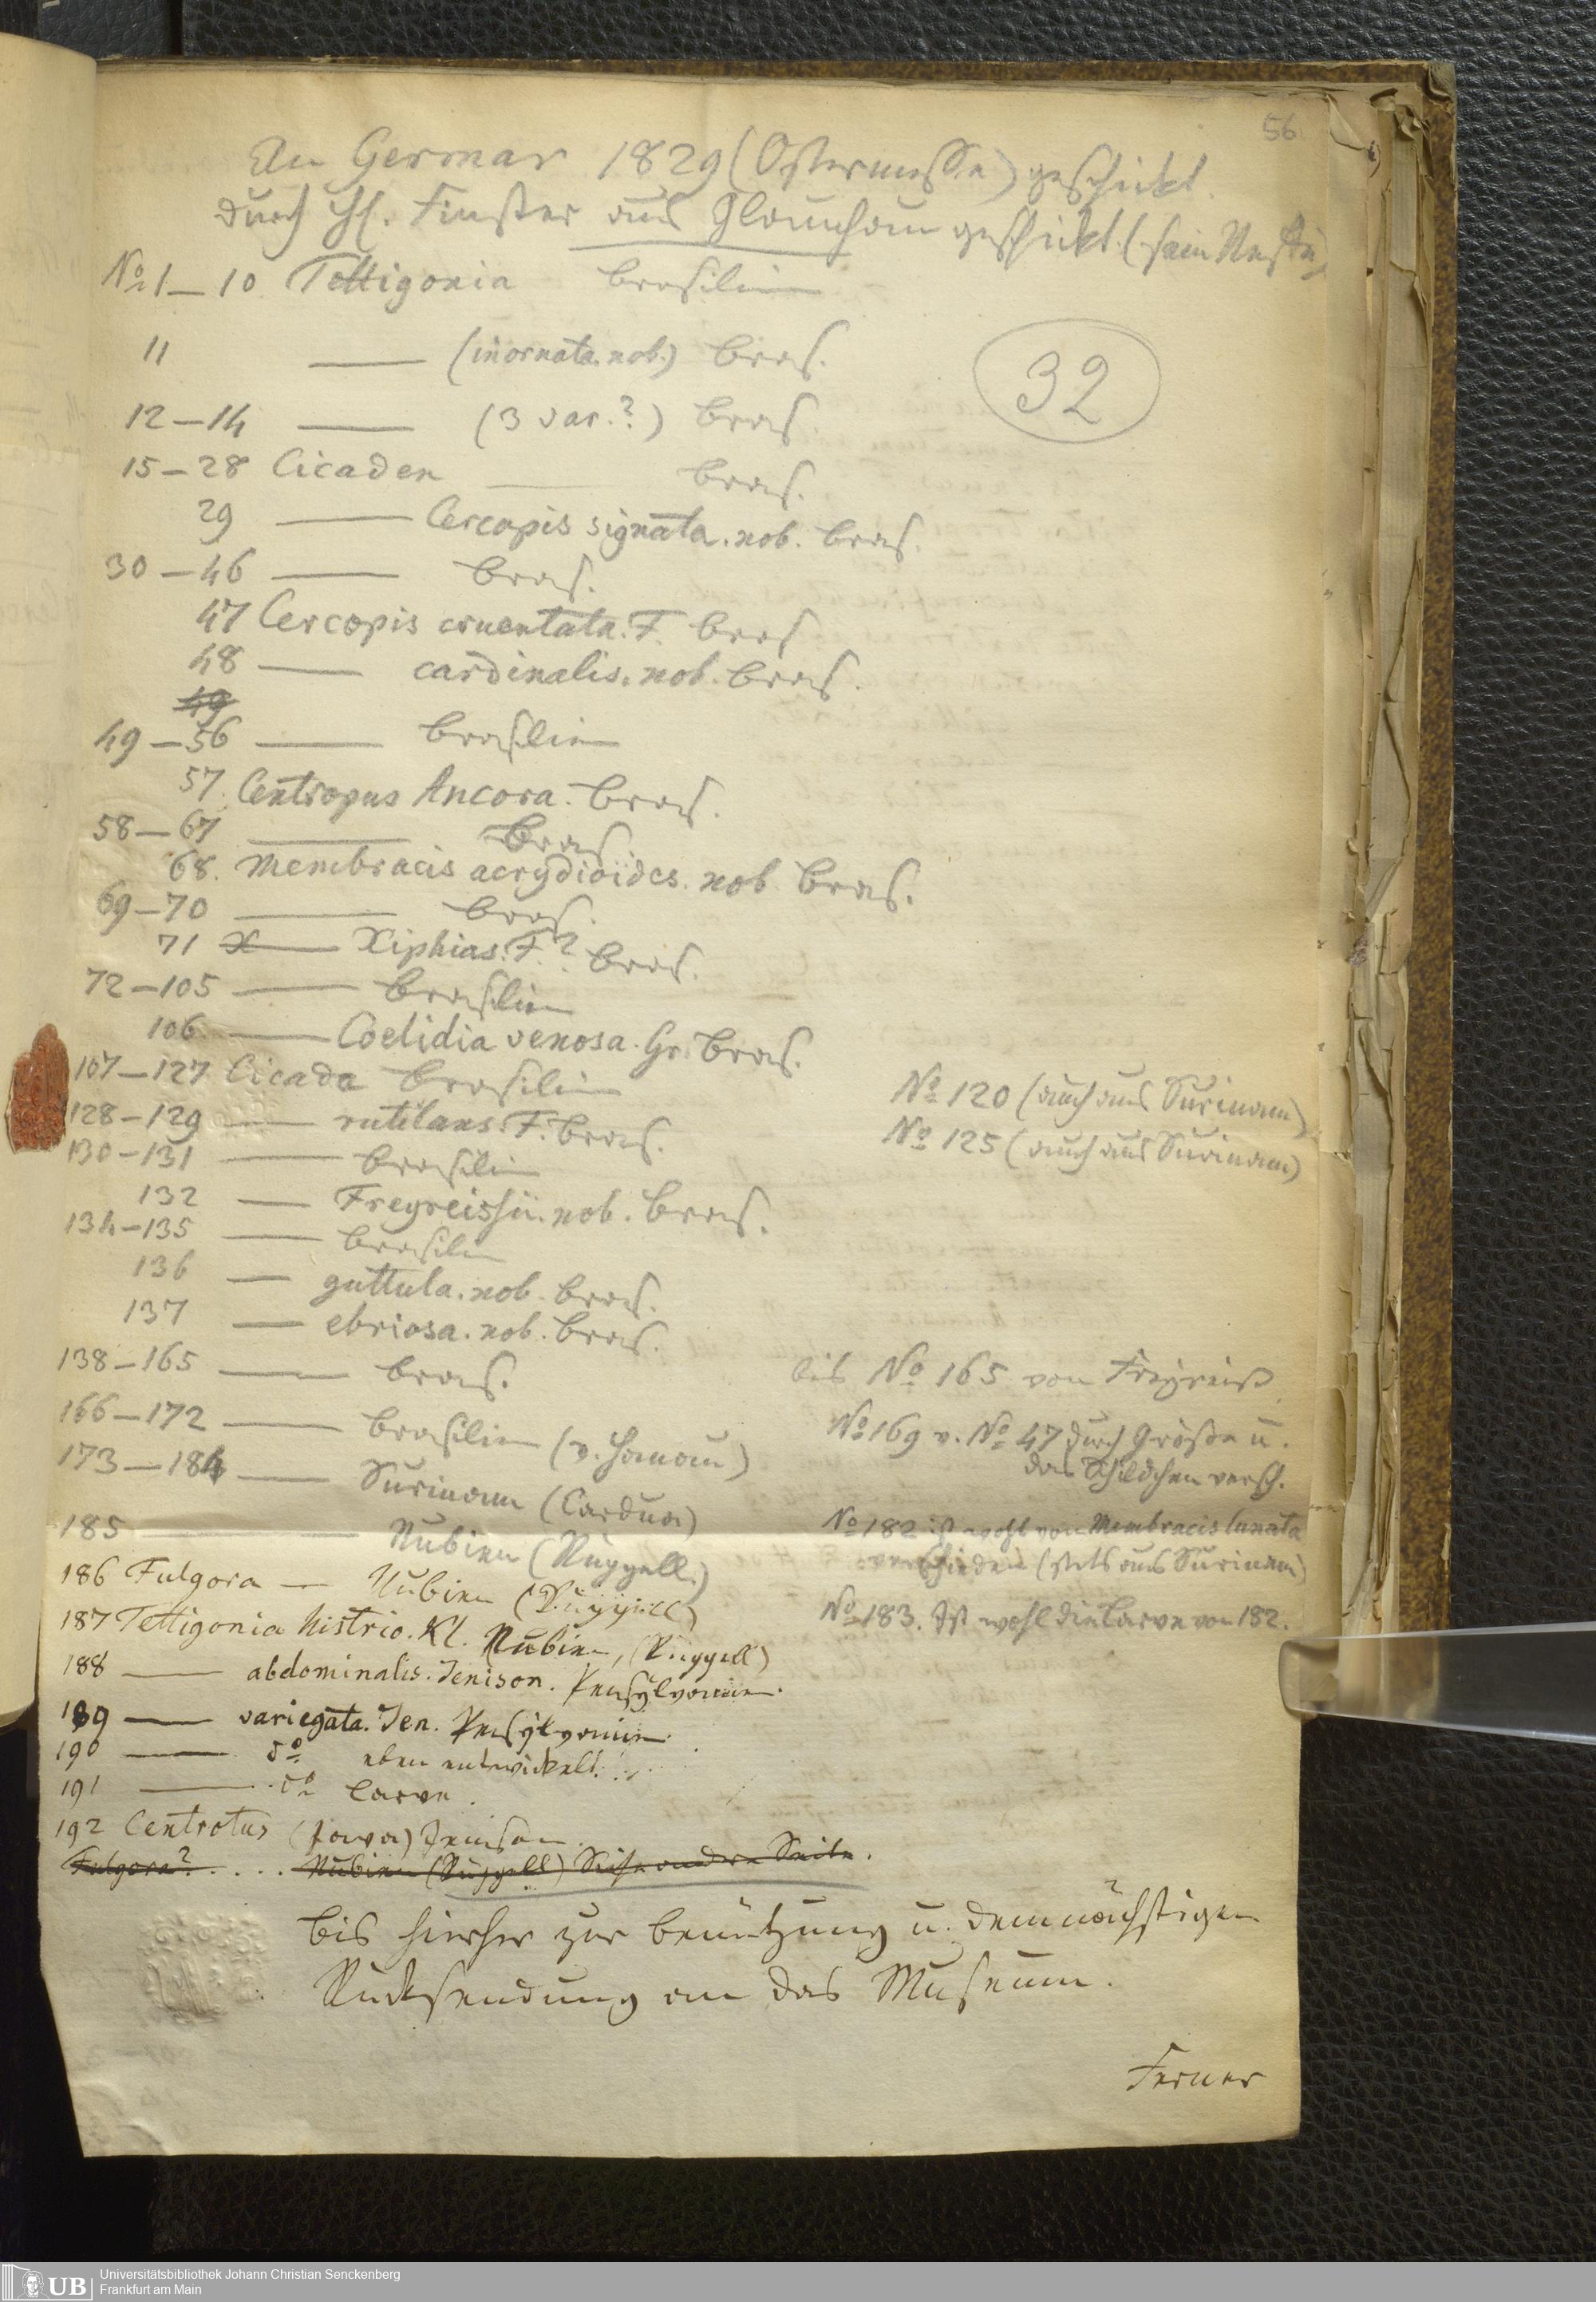 56
An Germar 1829 (Ostermesse) geschickt.
durch H. Finster aus Glauchau geschickt (sein
No 1–10 Tettigonia Brasilien
11 —— (inornata. nob.) Bras.
32
12–14 —— (3 var.?) Bras.
15–28 Cicaden —— Bras.
29 —— Cercopis signata. nob. Bras.
30–46 —— Bras.
47 Cercopis cruentata. F. Bras
48 —— cardinalis. nob. Bras.
49
49–56 —— Brasilien
57. Centropus Ancora. Bras.
58–67 —— Bras.
68. Membracis acrydioides. nob Bras.
69–70 —— Bras.
71 —— Xiphias. F.? Bras.
72–105 —— Brasilien
106 —— Coelidia venosa. Gr. Bras.
107–127 Cicada Brasilien
No 120 (auch aus Surinam)
128–129 —— rutilans. F. Bras.
No 125 (auch aus Surinam)
130–131 —— Brasilien
132 —— Freyreissii. nob. Bras.
134–135 —— Brasilien
136 —— guttula. nob. Bras.
137 —— ebriosa. nob. Bras.
138–165 —— Bras.
bis No 165 von Freyreiß
166–172 —— Brasilien (v. Hanau)
No 169 v. No 47 durch Größe u.
das Schildchen versch.
173–184 —— Surinam (Cardua)
185 —— Nubien (Rüppell.)
No 182 ist wohl von Membracis lunata
verschieden (stets aus Surinam)
186 Fulgora — Nubien (Rüppell)
No 183. Ist wohl die Larve von 182.
187 Tettigonia histrio. Kl. Nubien, (Rüppell)
188 —— abdominalis. Jenison. Pensylvanien.
189 —— variegata. Jen. Pensylvanien.
190 —— do eben entwickelt.
191 —— do Larve.
192 Centrotus (Java) Jenison.
Fulgora? . . . . Nubien (Rüppell) Siehe andre Seite.
bis hierher zur Benützung u. demnächstigen
Rücksendung an das Museum.
Ferner
UB
Universitätsbibliothek Johann Christian Senckenberg
Frankfurt am Main